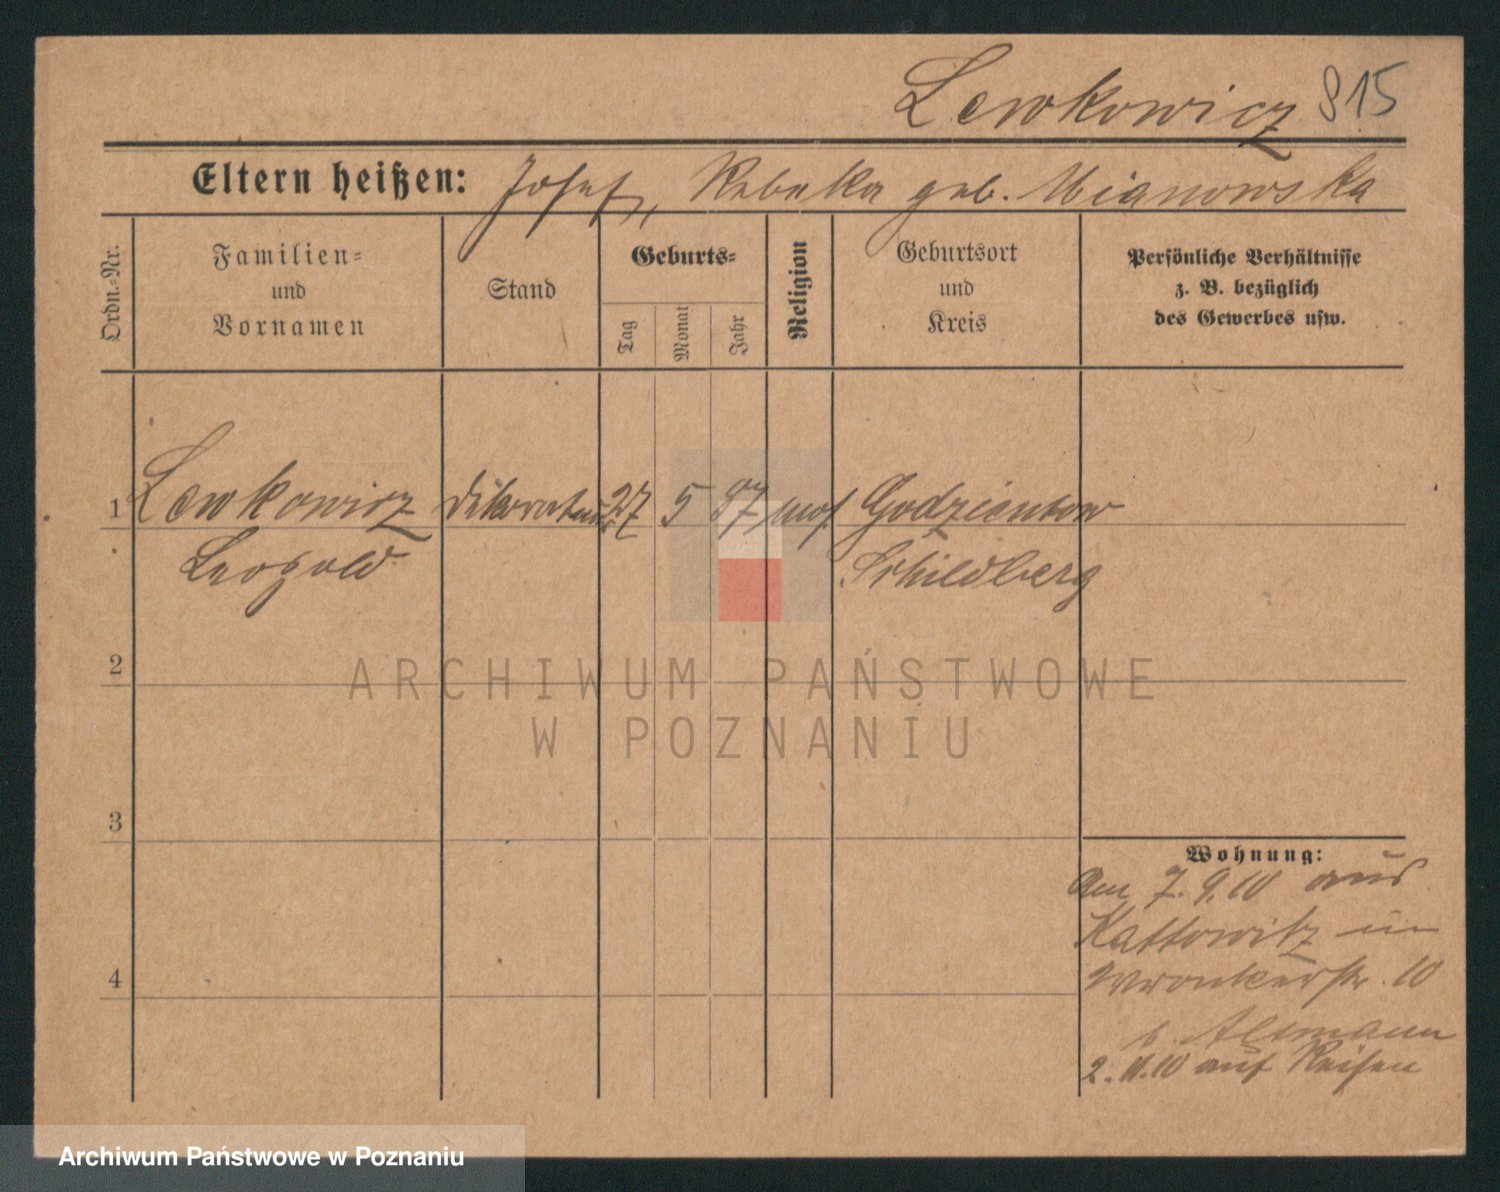 Lewkowicz 815
Eltern heißen: Josef, Rebeka geb. Mianowska
Ordn.-Nr.
Familien-
und
Vornamen
Stand
Geburts-
Tag
Monat
Jahr
Religion
Geburtsort
und
Kreis
Persönliche Verhältnisse
z. B. bezüglich
des Gewerbes usw.
1 Lewkowicz Dekorateur 27 5 87 mos. Godzientow
Leopold Schildberg
2
ARCHIWUM PAŃSTWOWE
W POZNANIU
3
Wohnung:
Am 7.9.10 aus
Kattowitz in
4
Wronkerstr. 10
b. Altmann
2.11.10 auf Reisen
Archiwum Państwowe w Poznaniu